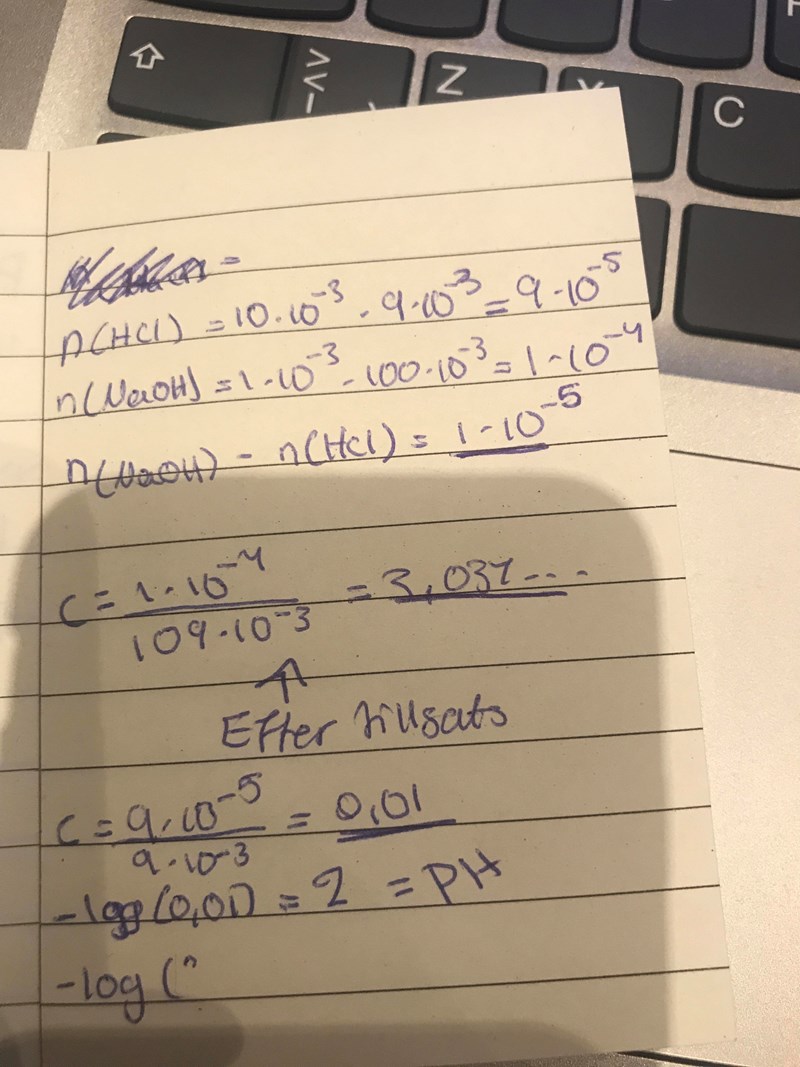 Z
C
=
n(HCl) = 10·10⁻³ · 9·10⁻³ = 9·10⁻⁵
n(NaOH) = 1·10⁻³ · 100·10⁻³ = 1·10⁻⁴
n(NaOH) - n(HCl) = 1·10⁻⁵
C = 1·10⁻⁴ / 109·10⁻³ = 3,037...
Efter tillsats
C = 9·10⁻⁵ / 9·10⁻³ = 0,01
-log(0,01) = 2 = PH
-log (